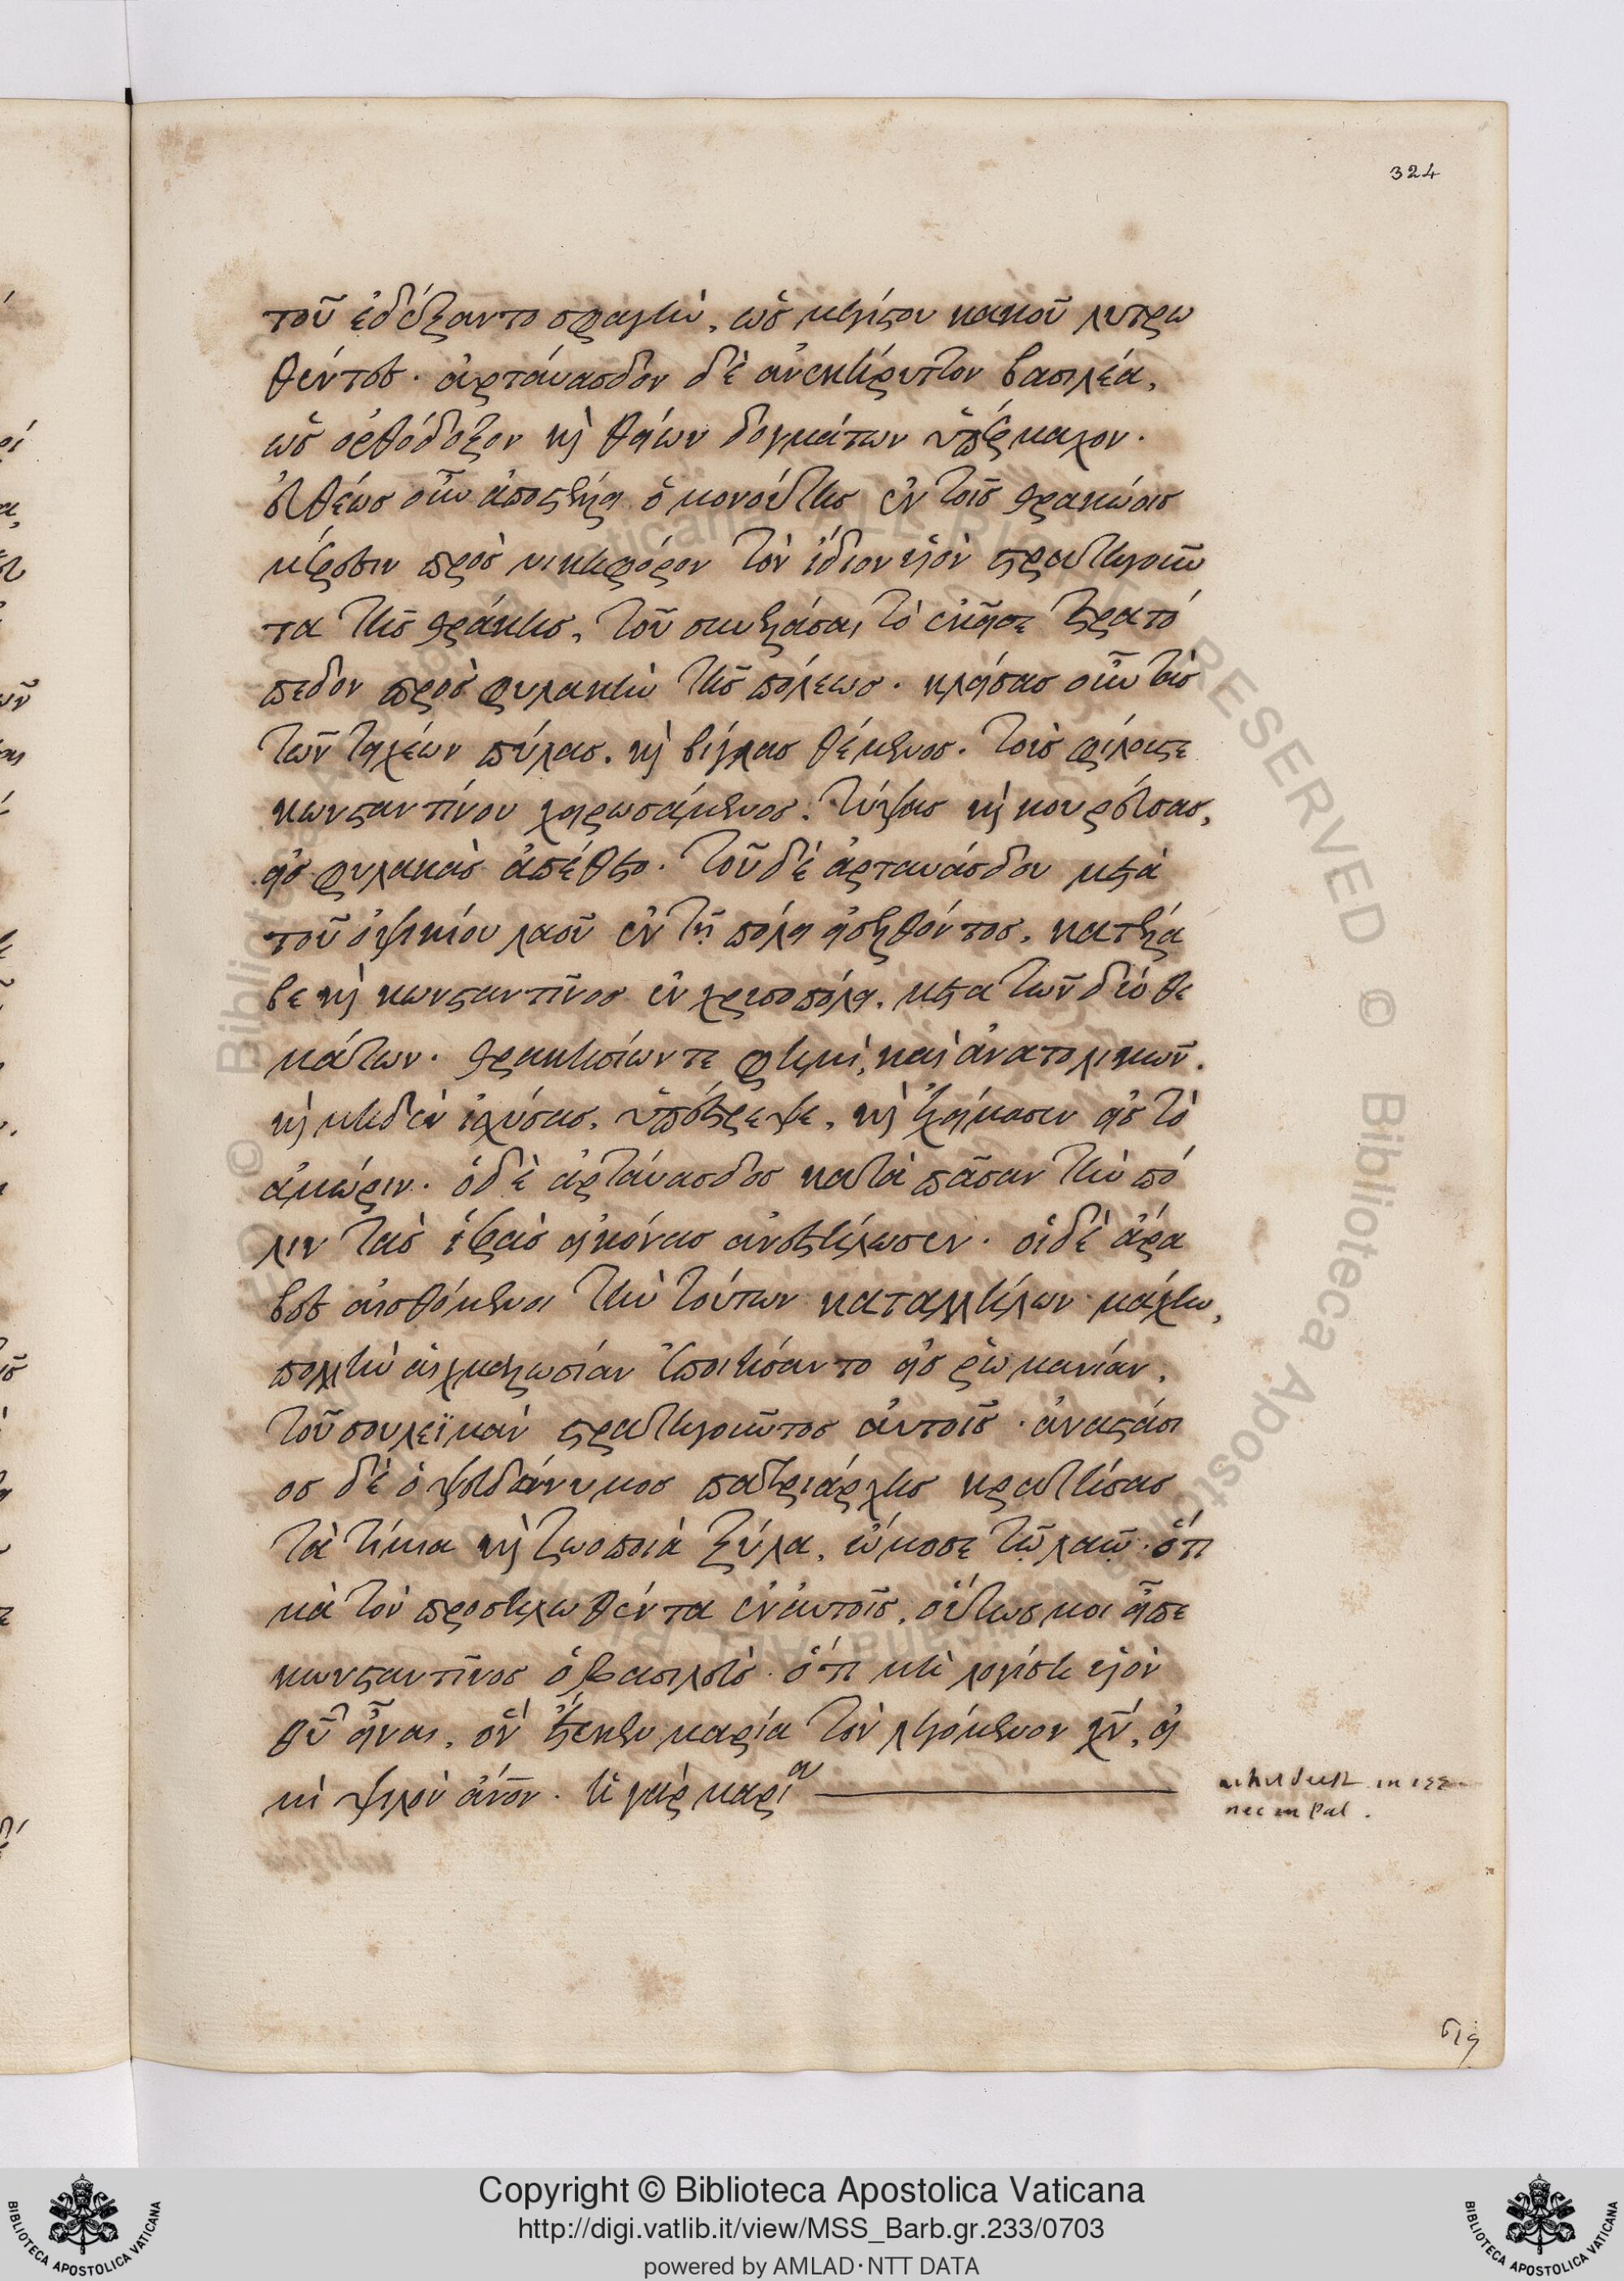 324
τοῦ ἐδέξαντο σφαγὴν, ὡς μεγίστου κακοῦ λυτρω
θέντες. ἀρτάυασδον δὲ ἀνεκήρυττον βασιλέα,
ὡς ὀρθόδοξον καὶ θείων δογμάτων ὑπέρμαχον.
εὐθέως οὖν ἀποστέλλει ὁ μονούτης ἐν τοῖς θρακώοις
μέρεσιν πρὸς νικηφόρον τὸν ἴδιον υἱὸν στρατηγοῦν
τα τῆς θράκης, τοῦ σκυλάσαι τὸ ἐκεῖσε στρατό
πεδον πρὸς φυλακὴν τῆς πόλεως. κλείσας οὖν τὰς
τῶν τειχέων πύλας. καὶ βίγλας θέμενος. τοὺς φίλους τε
κωνσταντίνου χειρωσάμενος. τύψας καὶ κουρεύσας,
εἰς φυλακὰς ἀπέθετο. τοῦ δὲ ἀρταυάσδου μετὰ
τοῦ ὀψικίου λαοῦ ἐν τῇ πόλει εἰσελθόντος, κατέλα
βε καὶ κωνσταντῖνος ἐν χρυσοπόλει. μετα τῶν δύο θε
μάτων. θρακησίων τε φημι, καὶ ἀνατολικῶν.
καὶ μηδὲν ἰσχύσας. ὑπέστρεψε, καὶ ἐχείμασεν εἰς τὸ
ἀμώριν. ὁ δὲ ἀρτάυασδος κατὰ πᾶσαν τὴν πό
λιν τὰς ἱερὰς εἰκόνας ἀνεστήλωσεν. οἱ δὲ ἄρα
βες αἰσθόμενοι τὴν τούτων καταλλήλων μάχην,
πολλὴν αἰχμαλωσίαν ἐποιήσαντο εἰς ῥωμανίαν.
τοῦ σουλεϊμὰν στρατηγοῦντος αὐτοῖς. ἀναστάσι
ος δὲ ὁ ψευδώνυμος πατριάρχης κρατήσας
τὰ τίμια καὶ ζωοποιὰ ξύλα, ὤμοσε τῷ λαῷ. ὅτι
μὰ τὸν προσηλωθέντα ἐν αὐτοῖς. οὕτως μοι εἶπε
κωνσταντῖνος ὁ βασιλεὺς. ὅτι μὴ λογίση υἱὸν
θῦ εἶναι, ὃν ἔτεκεν μαρία τὸν λεγόμενον χν, εἰ
μὶ ψιλὸν ἄνον. ἡ γὰρ μαρία
nihil deest in
nec in Pal.
Copyright © Biblioteca Apostolica Vaticana
http://digi.vatlib.it/view/MSS_Barb.gr.233/0703
powered by AMLAD·NTT DATA
BIBLIOTECA APOSTOLICA VATICANA
BIBLIOTECA APOSTOLICA VATICANA